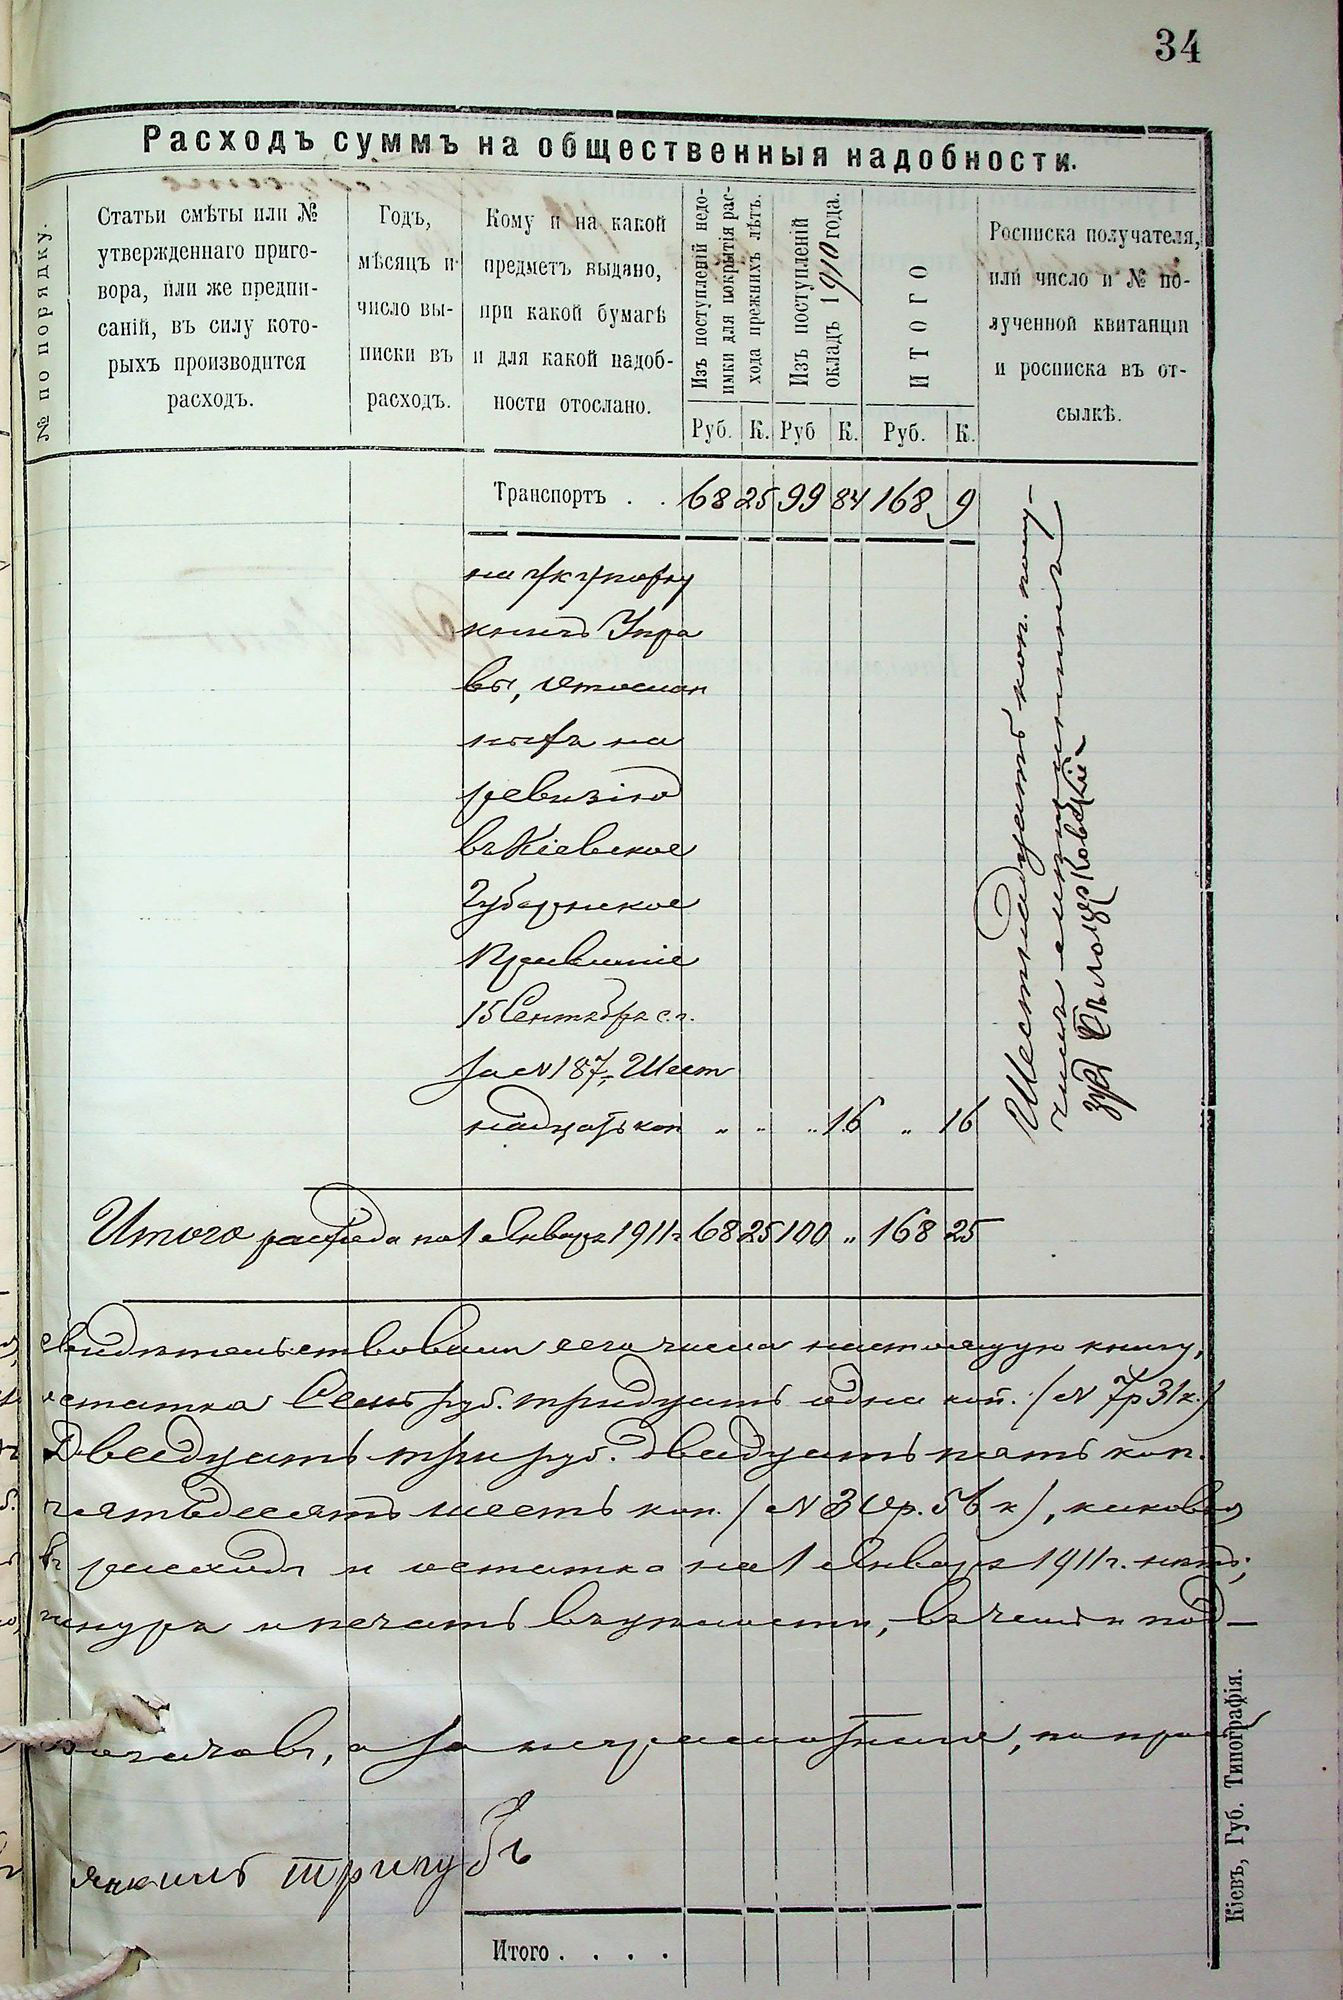 34
Расходъ суммъ на общественныя надобности.
№ по порядку.
Статьи смѣты или №
утвержденнаго приго-
вора, или же предпи-
саній, въ силу кото-
рыхъ производится
расходъ.
Годъ,
мѣсяцъ и
число вы-
писки въ
расходъ.
Кому и на какой
предметъ выдано,
при какой бумагѣ
и для какой надоб-
ности отослано.
Изъ поступленій недо-
имки для покрытія рас-
хода прежнихъ лѣтъ.
Изъ поступленій
окладъ 1910 года.
ИТОГО
Росписка получателя,
или число и № по-
лученной квитанціи
и росписка въ от-
сылкѣ.
Руб. К. Руб К. Руб. К.
Транспортъ . . 68 25 99 84 168 9
на укупорку
книгъ Упра
вы, отослан
ныхъ на
ревизію
въ Кіевское
Губернское
Правленіе
15 Сентября с.г.
за № 187, Шест
надцать коп „ „ „ 16 „ 16
Шестнадцать коп. полу-
Итого расхода по 1 Января 1911 г 68 25 100 „ 168 25
свидѣтельствовали сего числа настоящую книгу,
остатка Семь руб. тридцать одна коп. (№ 7р 31к.)
Двадцать три руб. двадцать пять коп.
пятьдесятъ шесть коп. (№ 30р. 56 к), каковая
въ расходъ и остатка на 1 Января 1911 г. нѣтъ;
шнуръ и печать въ цѣлости, въ чемъ и под-
а за неграмотные, по про
Якимъ Тригубъ
Итого . . . .
Кіевъ, Губ. Типографія.